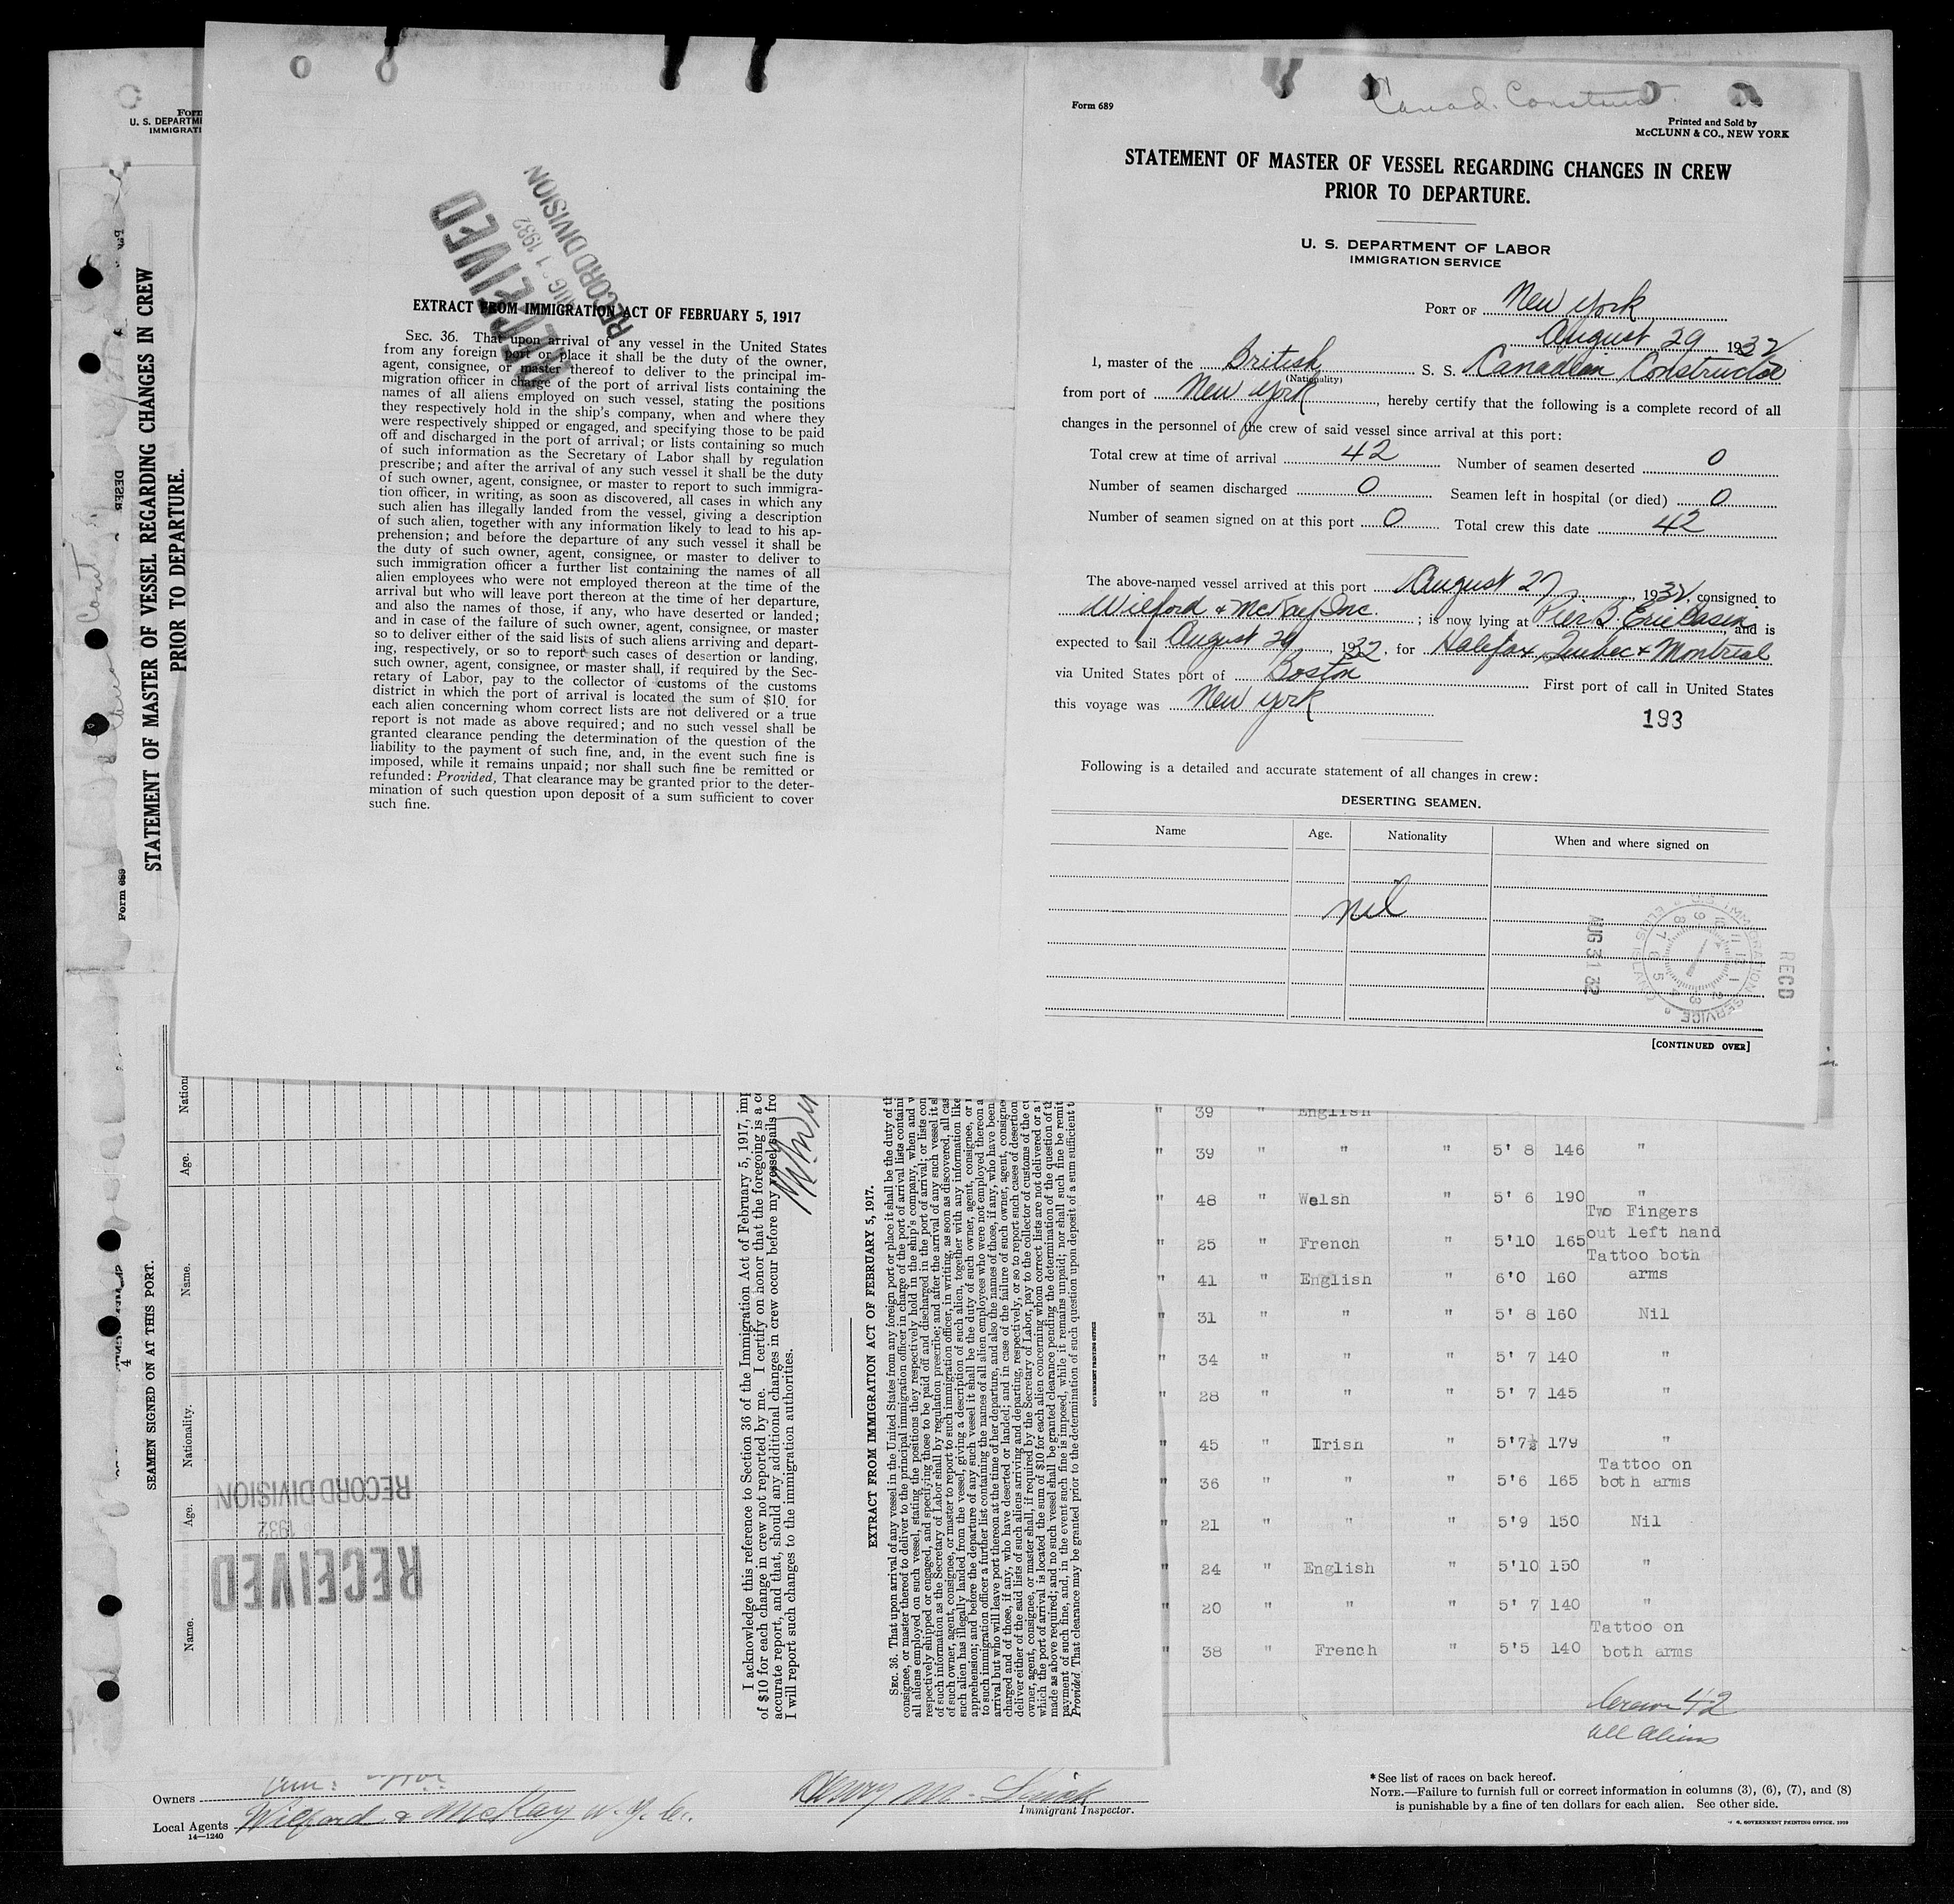 Form 689
Canad. Construct
Printed and Sold by
McCLUNN & CO., NEW YORK
STATEMENT OF MASTER OF VESSEL REGARDING CHANGES IN CREW
PRIOR TO DEPARTURE.
U. S. DEPARTMENT OF LABOR
IMMIGRATION SERVICE
PORT OF New York
August 29 1932
I, master of the British S. S. Canadian Constructor
(Nationality)
from port of New York, hereby certify that the following is a complete record of all
changes in the personnel of the crew of said vessel since arrival at this port:
Total crew at time of arrival 42 Number of seamen deserted 0
Number of seamen discharged 0 Seamen left in hospital (or died) 0
Number of seamen signed on at this port 0 Total crew this date 42
The above-named vessel arrived at this port August 27, 1932, consigned to
Wilford & McKay Inc. ; is now lying at Pier B. Erie Basin, and is
expected to sail August 29, 1932, for Halifax, Quebec & Montreal
via United States port of Boston First port of call in United States
this voyage was New York
193
Following is a detailed and accurate statement of all changes in crew:
DESERTING SEAMEN.
Name Age. Nationality When and where signed on
nil
AUG 31 32
RECD
IMMIGRATION SERVICE
ELLIS ISLAND
[CONTINUED OVER]
RECEIVED
1932
RECORD DIVISION
EXTRACT FROM IMMIGRATION ACT OF FEBRUARY 5, 1917
SEC. 36. That upon arrival of any vessel in the United States
from any foreign port or place it shall be the duty of the owner,
agent, consignee, or master thereof to deliver to the principal im-
migration officer in charge of the port of arrival lists containing the
names of all aliens employed on such vessel, stating the positions
they respectively hold in the ship's company, when and where they
were respectively shipped or engaged, and specifying those to be paid
off and discharged in the port of arrival; or lists containing so much
of such information as the Secretary of Labor shall by regulation
prescribe; and after the arrival of any such vessel it shall be the duty
of such owner, agent, consignee, or master to report to such immigra-
tion officer, in writing, as soon as discovered, all cases in which any
such alien has illegally landed from the vessel, giving a description
of such alien, together with any information likely to lead to his ap-
prehension; and before the departure of any such vessel it shall be
the duty of such owner, agent, consignee, or master to deliver to
such immigration officer a further list containing the names of all
alien employees who were not employed thereon at the time of the
arrival but who will leave port thereon at the time of her departure,
and also the names of those, if any, who have deserted or landed;
and in case of the failure of such owner, agent, consignee, or master
so to deliver either of the said lists of such aliens arriving and depart-
ing, respectively, or so to report such cases of desertion or landing,
such owner, agent, consignee, or master shall, if required by the Sec-
retary of Labor, pay to the collector of customs of the customs
district in which the port of arrival is located the sum of $10 for
each alien concerning whom correct lists are not delivered or a true
report is not made as above required; and no such vessel shall be
granted clearance pending the determination of the question of the
liability to the payment of such fine, and, in the event such fine is
imposed, while it remains unpaid; nor shall such fine be remitted or
refunded: Provided, That clearance may be granted prior to the deter-
mination of such question upon deposit of a sum sufficient to cover
such fine.
Form
U. S. DEPARTME
IMMIGRATI
Form 689
STATEMENT OF MASTER OF VESSEL REGARDING CHANGES IN CREW
PRIOR TO DEPARTURE.
DESER
SEAMEN SIGNED ON AT THIS PORT.
Name. Age. Nationality. Name. Age. Nation
RECEIVED
1932
RECORD DIVISION
I acknowledge this reference to Section 36 of the Immigration Act of February 5, 1917, imp
of $10 for each change in crew not reported by me. I certify on honor that the foregoing is a co
accurate report, and that, should any additional changes in crew occur before my vessel sails fro
I will report such changes to the immigration authorities.
EXTRACT FROM IMMIGRATION ACT OF FEBRUARY 5, 1917.
SEC. 36. That upon arrival of any vessel in the United States from any foreign port or place it shall be the duty of th
consignee, or master thereof to deliver to the principal immigration officer in charge of the port of arrival lists containi
all aliens employed on such vessel, stating the positions they respectively hold in the ship's company, when and w
respectively shipped or engaged, and specifying those to be paid off and discharged in the port of arrival; or lists con
of such information as the Secretary of Labor shall by regulation prescribe; and after the arrival of any such vessel it s
of such owner, agent, consignee, or master to report to such immigration officer, in writing, as soon as discovered, all cas
such alien has illegally landed from the vessel, giving a description of such alien, together with any information like
apprehension; and before the departure of any such vessel it shall be the duty of such owner, agent, consignee, or
to such immigration officer a further list containing the names of all alien employees who were not employed thereon a
arrival but who will leave port thereon at the time of her departure, and also the names of those, if any, who have been
charged and of those, if any, who have deserted or landed; and in case of the failure of such owner, agent, consigne
deliver either of the said lists of such aliens arriving and departing, respectively, or so to report such cases of desertion
owner, agent, consignee, or master shall, if required by the Secretary of Labor, pay to the collector of customs of the cu
which the port of arrival is located the sum of $10 for each alien concerning whom correct lists are not delivered or a t
made as above required; and no such vessel shall be granted clearance pending the determination of the question of th
payment of such fine, and, in the event such fine is imposed, while it remains unpaid; nor shall such fine be remit
Provided That clearance may be granted prior to the determination of such question upon deposit of a sum sufficient t
GOVERNMENT PRINTING OFFICE
" 39 " English
" 39 " " " 5' 8 146 "
" 48 " Welsh " 5' 6 190 "
Two Fingers
out left hand
" 25 " French " 5'10 165
Tattoo both
arms
" 41 " English " 6'0 160
" 31 " " " 5' 8 160 Nil
" 34 " " " 5' 7 140 "
" 28 " " " 5' 7 145 "
" 45 " Irish " 5'7½ 179 "
Tattoo on
" 36 " " " 5'6 165 both arms
" 21 " " " 5'9 150 Nil
" 24 " English " 5'10 150 "
" 20 " " " 5' 7 140 "
Tattoo on
" 38 " French " 5'5 140 both arms
Crew 42
all aliens
Owners
Local Agents Wilford & McKay N.Y. C.
14—1240
Henry M.
Immigrant Inspector.
* See list of races on back hereof.
NOTE.—Failure to furnish full or correct information in columns (3), (6), (7), and (8)
is punishable by a fine of ten dollars for each alien. See other side.
GOVERNMENT PRINTING OFFICE